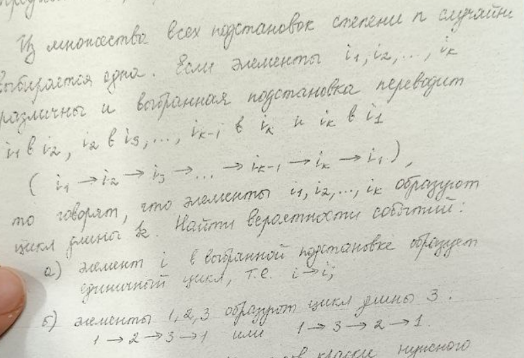 Из множества всех подстановок степени n случайно
выбирается одна. Если элементы i₁, i₂, ..., iₖ
различны и выбранная подстановка переводит
i₁ в i₂, i₂ в i₃, ..., iₖ₋₁ в iₖ и iₖ в i₁
( i₁ → i₂ → i₃ → ... → iₖ₋₁ → iₖ → i₁ ),
то говорят, что элементы i₁, i₂, ..., iₖ образуют
цикл длины k. Найти вероятности событий:
а) элемент i в выбранной подстановке образует
единичный цикл, т.е. i → i;
б) элементы 1, 2, 3 образуют цикл длины 3.
1 → 2 → 3 → 1 или 1 → 3 → 2 → 1.
краски нужного